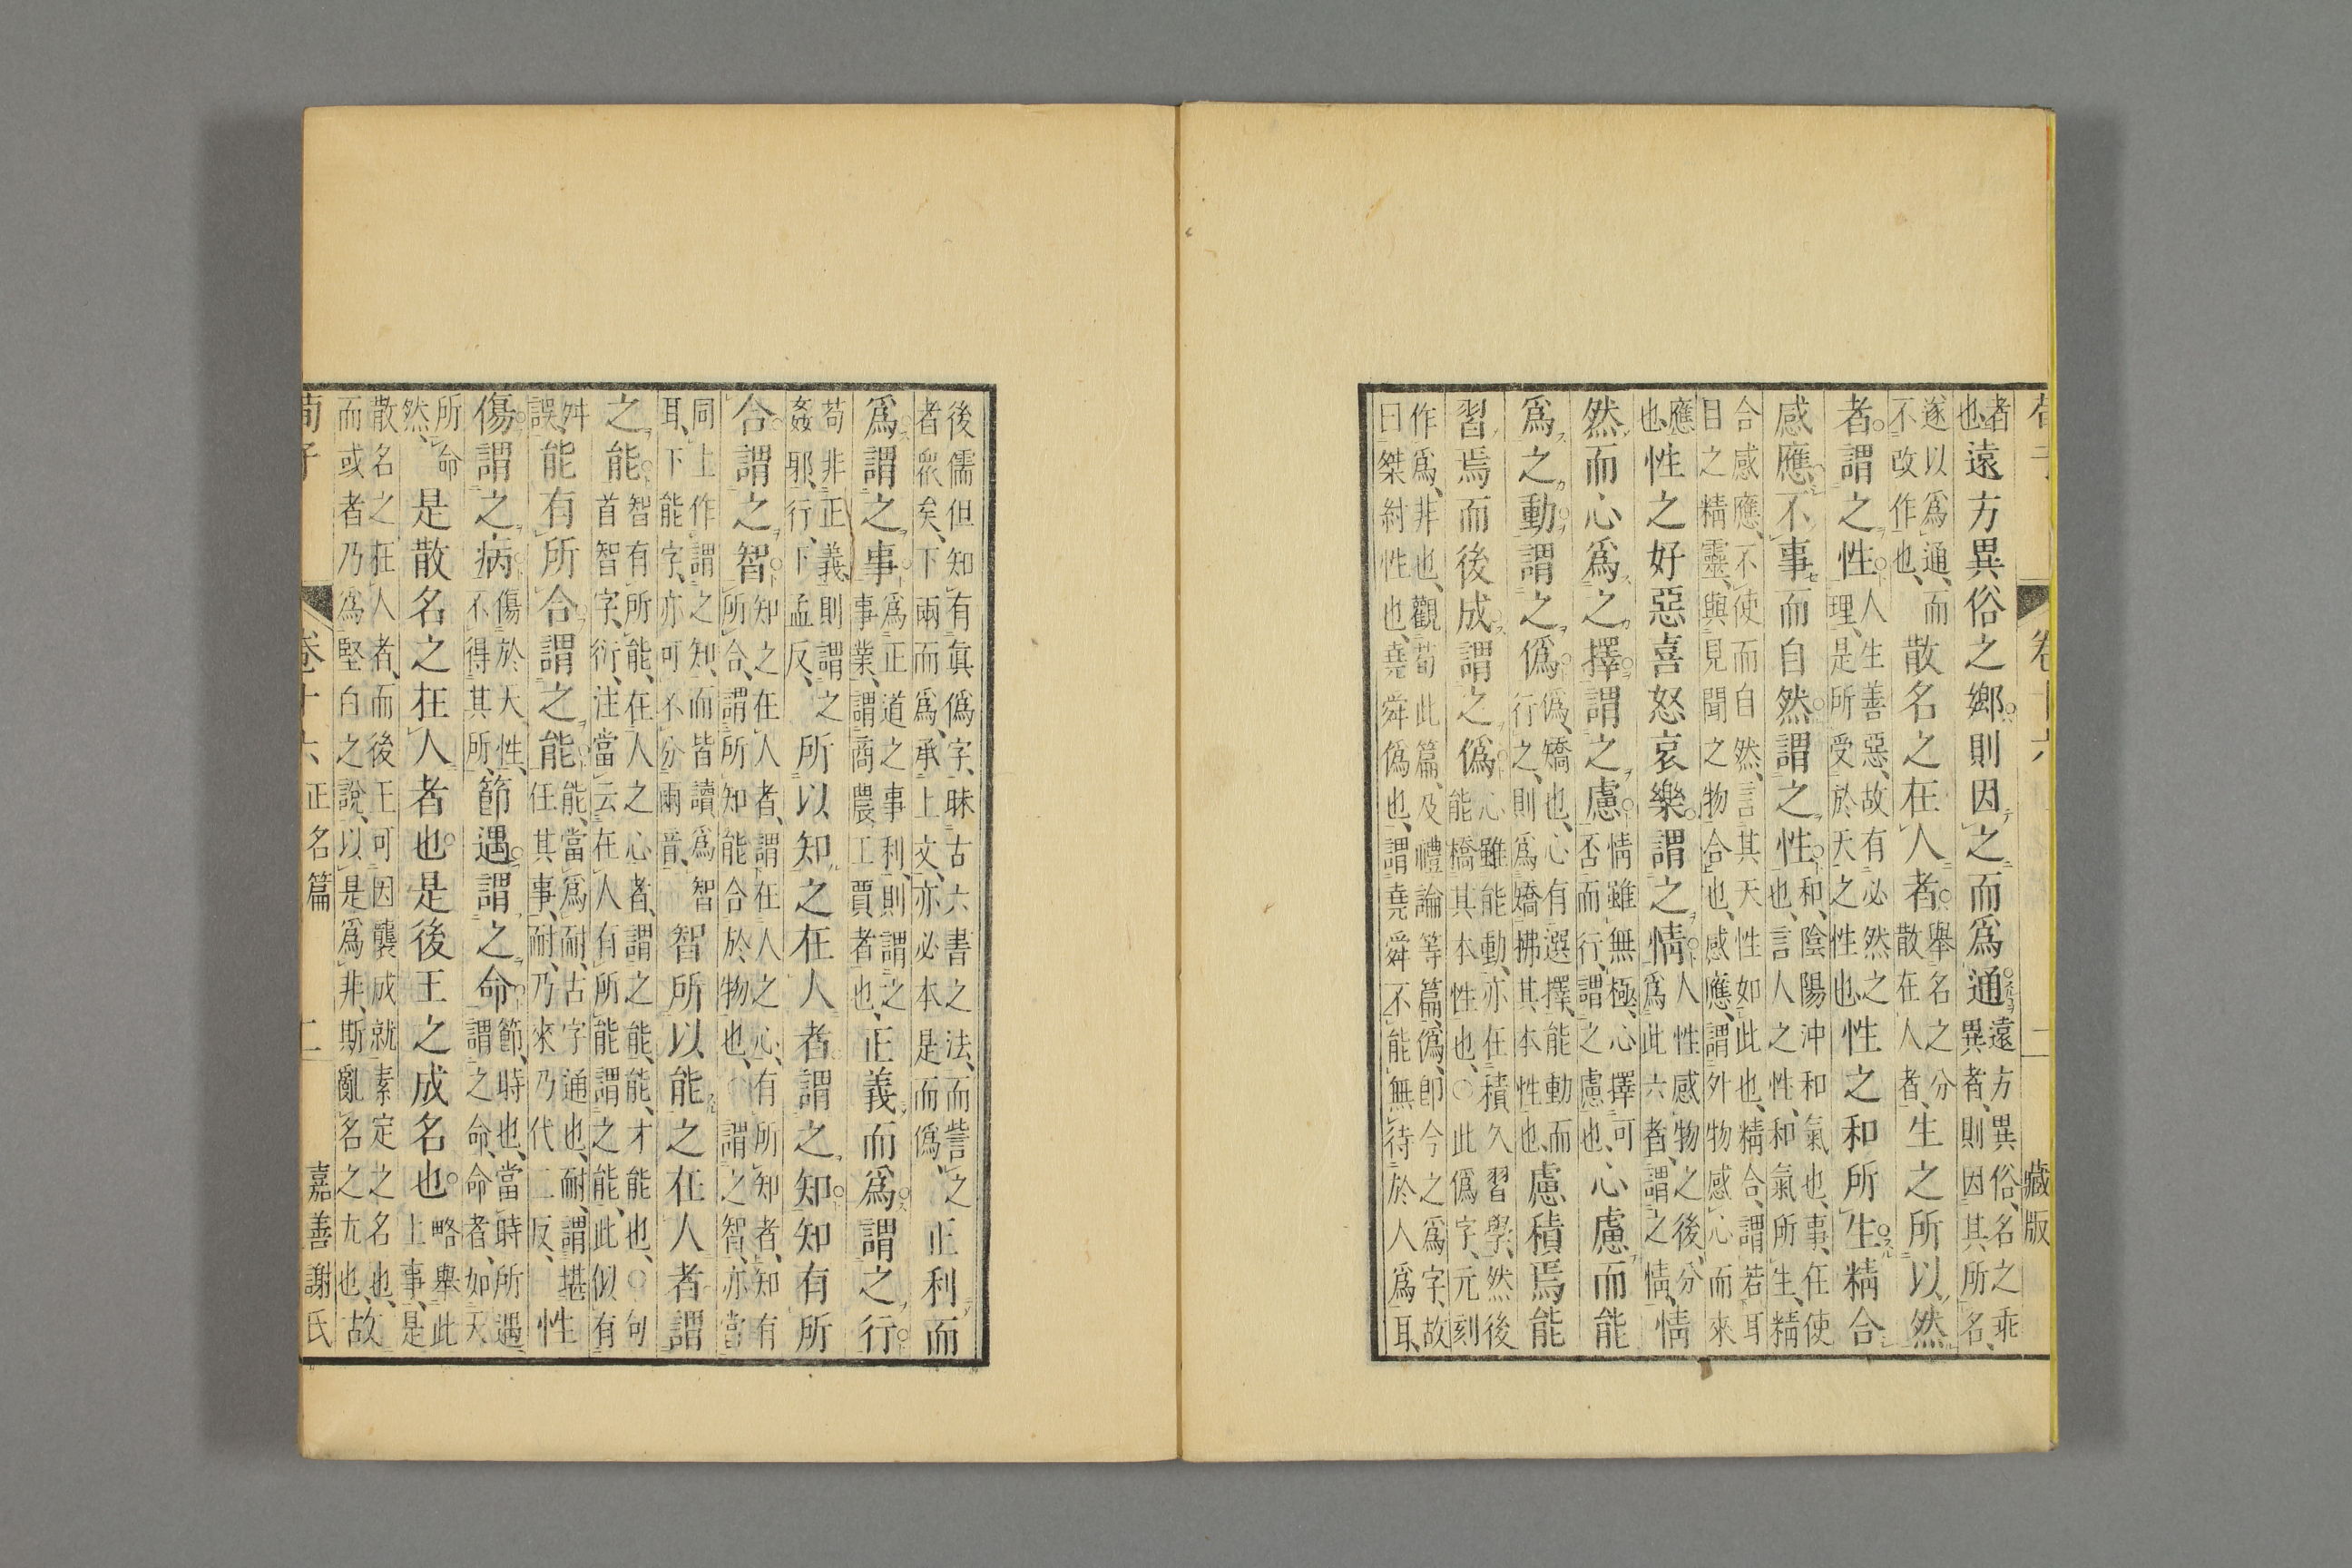 荀子 卷十六 二 藏版
者也遠方異俗之鄉則因之而爲通遠方異俗名之乖異者則因其所名
遂以爲通而不改作也散名之在人者舉名之分散在人者生之所以然
者謂之性人生善惡故有必然之理是所受於天之性也性之和所生精合
感應不事而自然謂之性和陰陽沖和氣也事任使也言人之性和氣所生精
合感應不使而自然言其天性如此也精合謂若耳目之精靈與見聞之物合也感應謂外物感心而來
應也性之好惡喜怒哀樂謂之情人性感物之後分爲此六者謂之情情
然而心爲之擇謂之慮情雖無極心擇可否而行謂之慮也心慮而能
爲之動謂之僞僞矯也心有選擇能動而行之則爲矯拂其本性也慮積焉能
習焉而後成謂之僞心雖能動亦在積久習學然後能橋其本性也○此僞字元刻
作爲非也觀荀此篇及禮論等篇僞卽今之爲字故曰桀紂性也堯舜僞也謂堯舜不能無待於人爲耳
後儒但知有眞僞字昧古六書之法而訾之者衆矣下兩而爲承上文亦必本是而僞正利而
爲謂之事爲正道之事利則謂之事業謂商農工賈者也正義而爲謂之行
苟非正義則謂之姦邪行下孟反所以知之在人者謂之知知有所
合謂之智知之在人者謂在人之心有所知者知有所合謂所知能合於物也○謂之智亦當
同上作謂之知而皆讀爲智耳下能字亦可不分兩音智所以能之在人者謂
之能智有所能在人之心者謂之能能才能也○句首智字衍注當云在人有所能謂之能此似有
舛誤能有所合謂之能能當爲耐古字通也耐謂堪任其事耐乃來乃代二反性
傷謂之病傷於天性不得其所節遇謂之命節時也當時所遇謂之命命者如天
所命然是散名之在人者也是後王之成名也略舉此上事是
散名之在人者而後王可因襲成就素定之名也故而或者乃爲堅白之說以是爲非斯亂名之尤也
荀子 卷十六 正名篇 二 嘉善謝氏